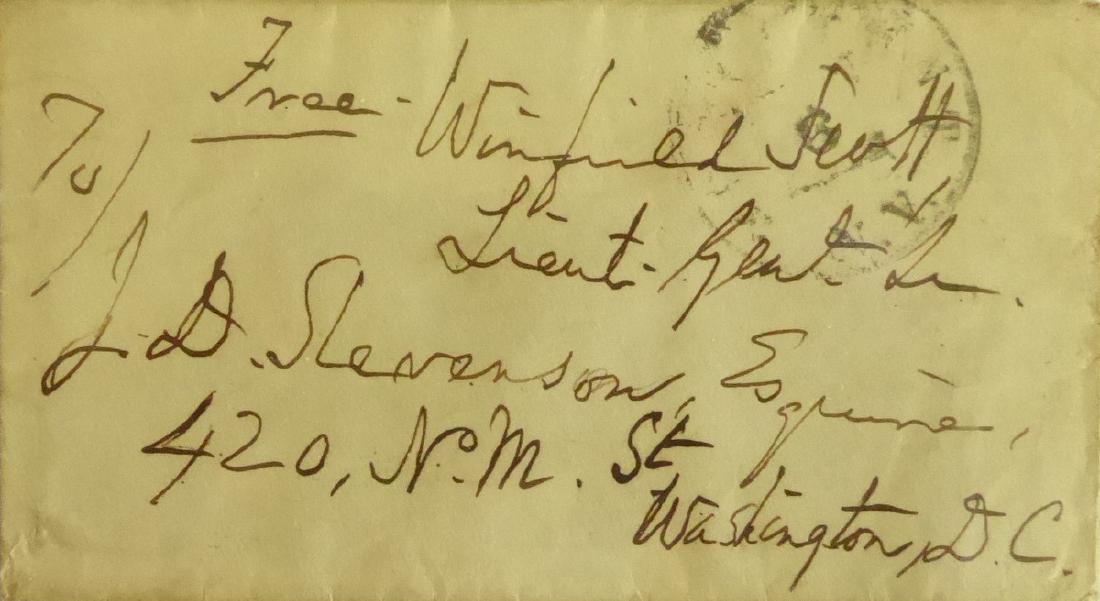 Free - Winfield Scott
Lieut. Genl.
To/
J. D. Stevenson, Esquire,
420, No. M. St
Washington, D. C.